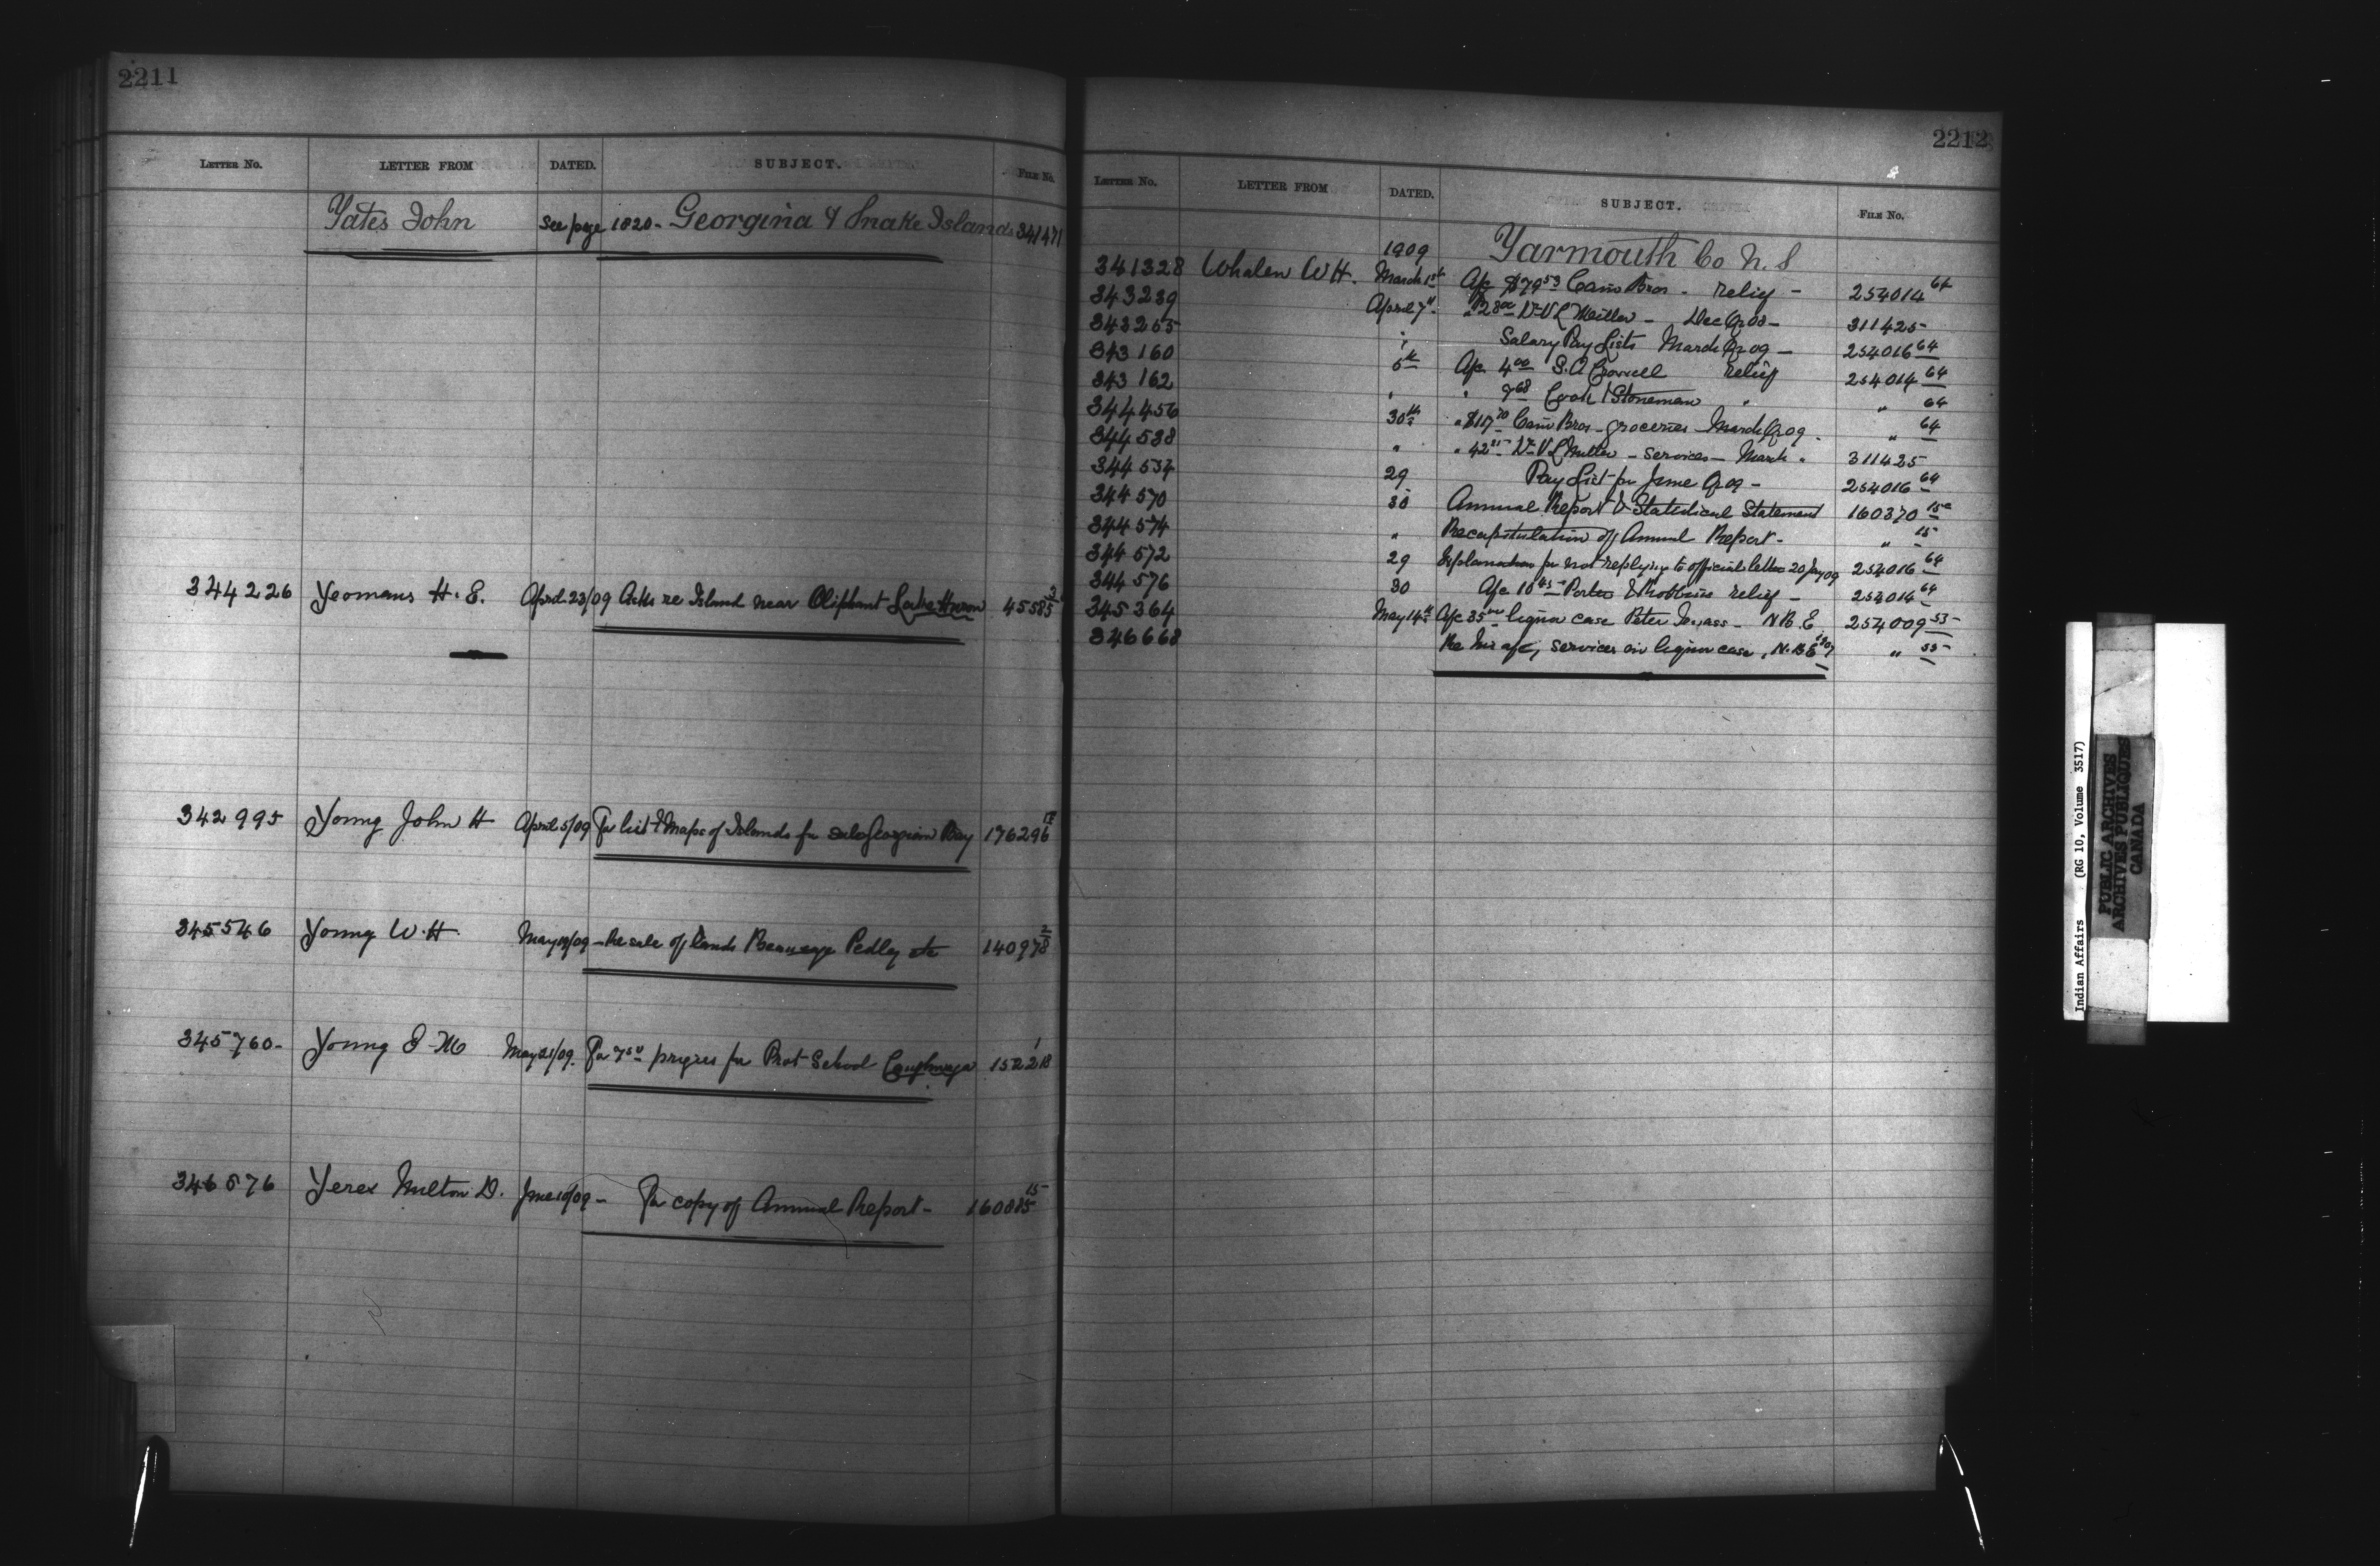 2211
LETTER NO. LETTER FROM DATED. SUBJECT. FILE NO.
Yates John see page 1820- Georgina & Snake Islands 341471
344226 Yeomans H. E. April 23/09 Asks re Island near Oliphant Lake Huron 45585 3
342995 Young John H April 5/09 For list & Maps of Islands for sale Georgian Bay 176296
345546 Young W. H. May /09 - Re sale of lands Pedley etc 140978 2
345760- Young E M May 21/09. For 7 50 for Prot School Caughnaga 152218 1
346576 Yerex Milton D. June 10/09 - For copy of Annual Report - 160085 15
2212
LETTER NO. LETTER FROM DATED. SUBJECT. FILE NO.
1909 Yarmouth Co N. S
341328 Whalen W H. March 1st A/c $79 53 Cann Bros - relief - 254014 64
343239 April 7th " 28 00 Dr V L Miller - Dec Qr 08 - 311425
343255 " Salary Pay Lists March Qr 09 - 254016 64
343160 5th A/c 4 00 S. A Crowell relief 254014 64
343162 " " 9 68 Cook & Stoneman " " 64
344456 30th " $117 70 Cann Bros - groceries March Qr 09 - " 64
344538 " " 42 25 Dr V L Miller - services - March " 311425
344537 29 Pay List for June Qr 09 - 254016 64
344570 30 Annual Report & Statistical Statement 160370 15c
344574 " Recapitulation of Annual Report - " 15
344572 29 Explanation for not replying to official letter 20 Jany 09 254016 64
344576 30 A/c 10 45 Porter & Robbins relief - 254014 64
345364 May 14th A/c 35 liquor case Peter - N. B. E. 254009 53
346668 Re his a/c, services in liquor case, N. B E " 53
Indian Affairs (RG 10, Volume 3517)
PUBLIC ARCHIVES
ARCHIVES PUBLIQUES
CANADA